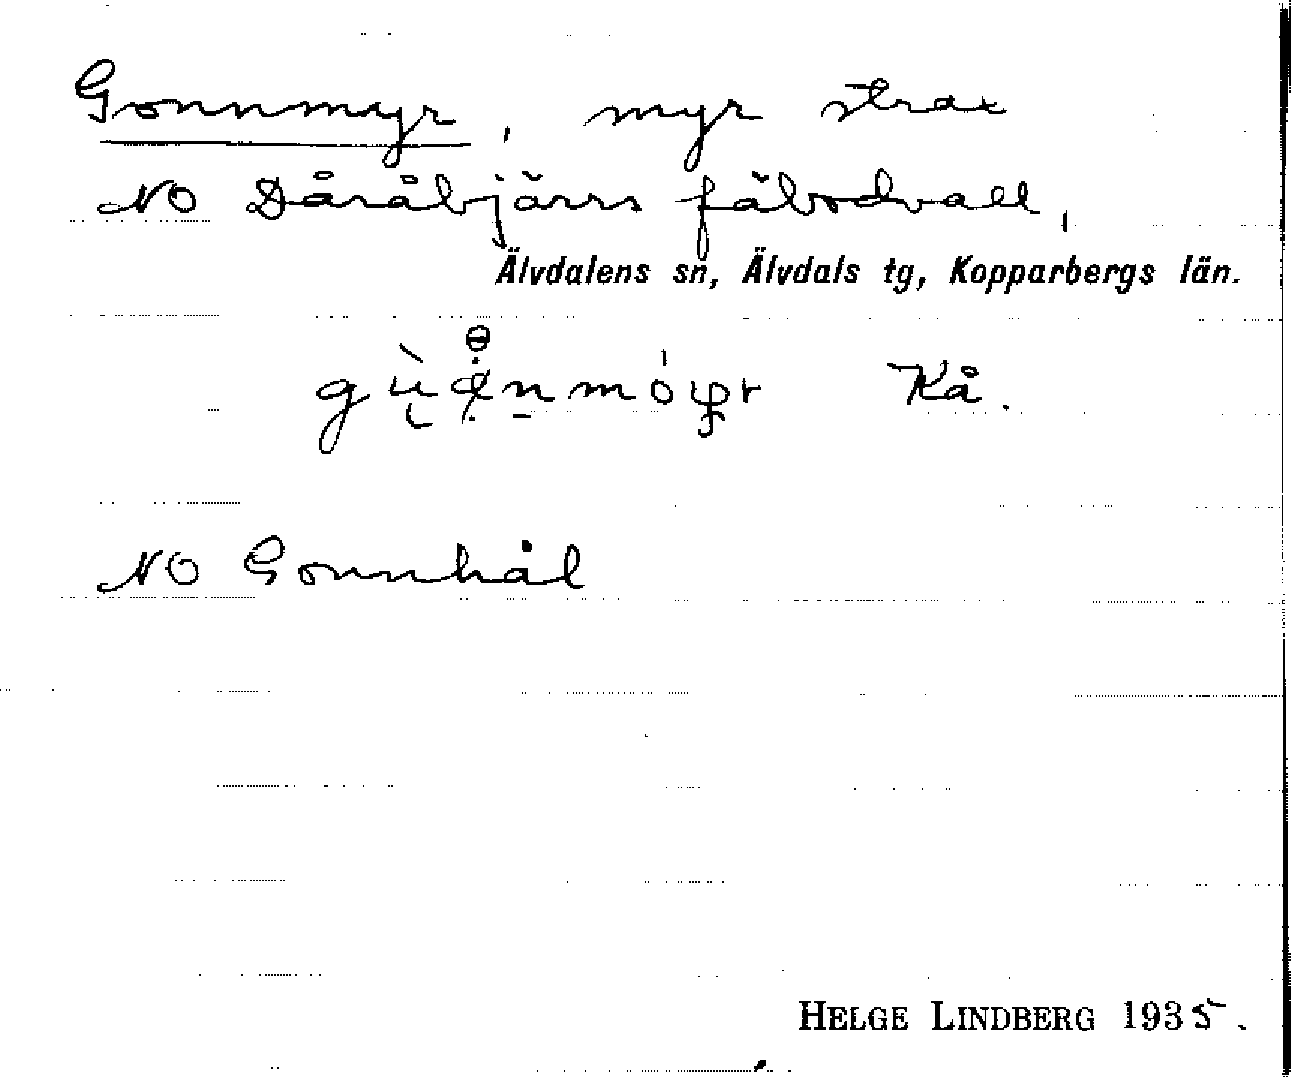 Gonnmyr, myr strax
NO Dåråbjärrs fäbodvall,
Älvdalens sn, Älvdals tg, Kopparbergs län.
Kå.
NO Gonnhål
HELGE LINDBERG 1935.